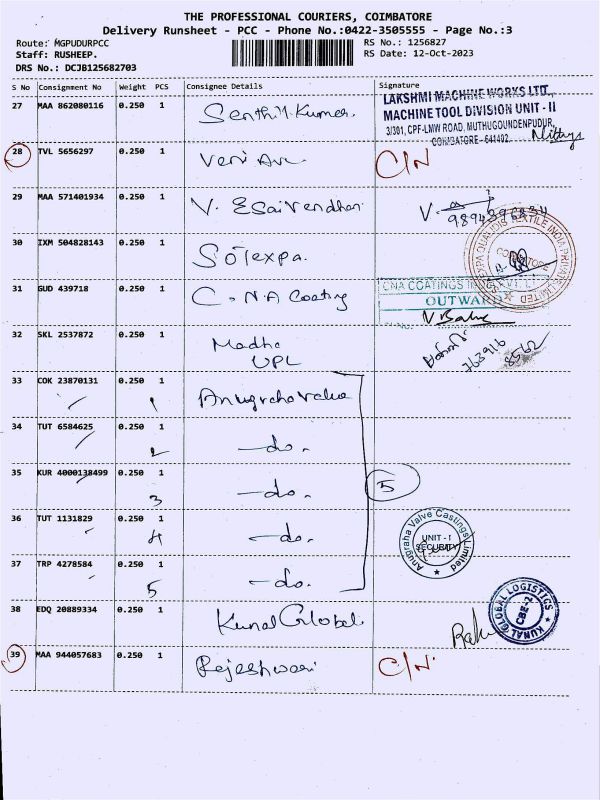 THE PROFESSIONAL COURIERS, COIMBATORE
Delivery Runsheet - PCC - Phone No.:0422-3505555 - Page No.:3
Route: MGPUDURPCC
RS No.: 1256827
Staff: RUSHEEP.
RS Date: 12-Oct-2023
DRS No.: DCJB125682703
S No Consignment No Weight PCS Consignee Details Signature
27 MAA 862080116 0.250 1 Senthil Kumar
LAKSHMI MACHINE WORKS LTD.,
MACHINE TOOL DIVISION UNIT - II
3/301, CPF-LMW ROAD, MUTHUGOUNDENPUDUR,
COIMBATORE - 641402.
28 TVL 5656297 0.250 1 C/N
29 MAA 571401934 0.250 1 V. Esaivendhan V.
30 IXM 504828143 0.250 1 Sotexpa
COIMBATORE
31 GUD 439718 0.250 1 C.N.A Coating
OUTWARD
32 SKL 2537872 0.250 1 Madha
UPL
763916
33 COK 23870131 0.250 1 Anugraha Valve
1
34 TUT 6584625 0.250 1 -do-
2
35 KUR 4000138499 0.250 1 -do- 5
3
36 TUT 1131829 0.250 1 -do-
4
Anugraha Valve Castings Limited
UNIT - I
SECURITY
37 TRP 4278584 0.250 1 -do-
5
38 EDQ 20889334 0.250 1 Kunal Global
KUNAL GLOBAL LOGISTICS
CBE-2
39 MAA 944057683 0.250 1 Rajeshwari C/N